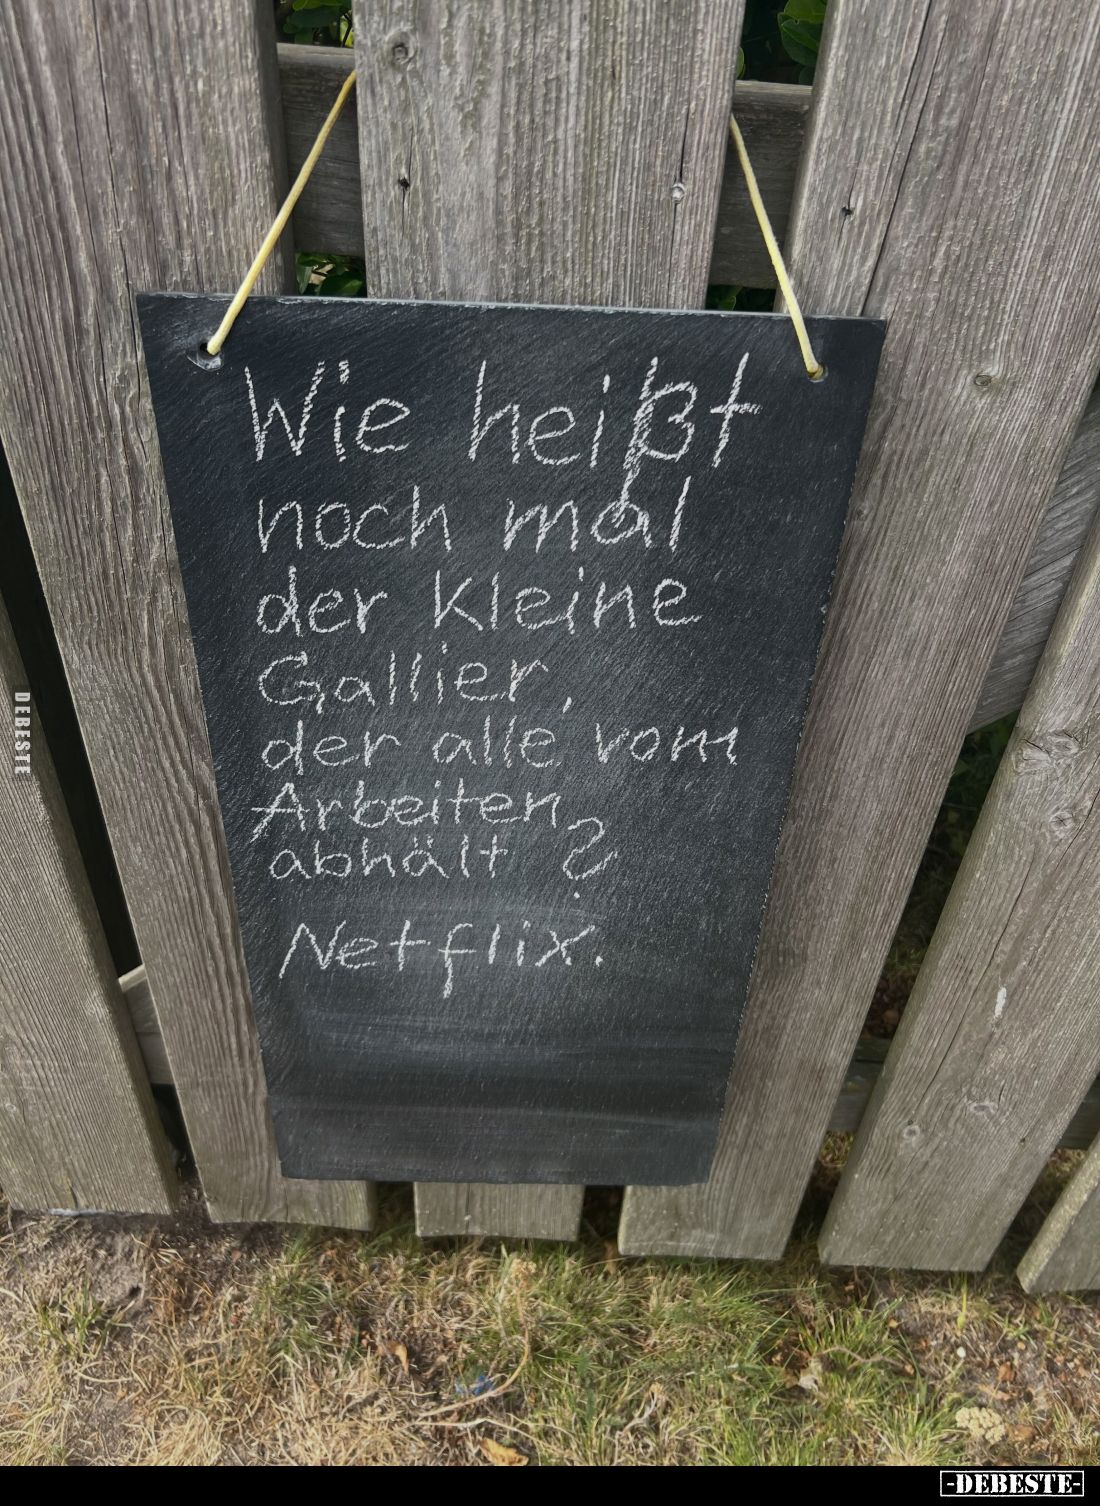 Wie heißt
noch mal
der kleine
Gallier,
der alle vom
Arbeiten
abhält?
Netflix.
DEBESTE
-DEBESTE-